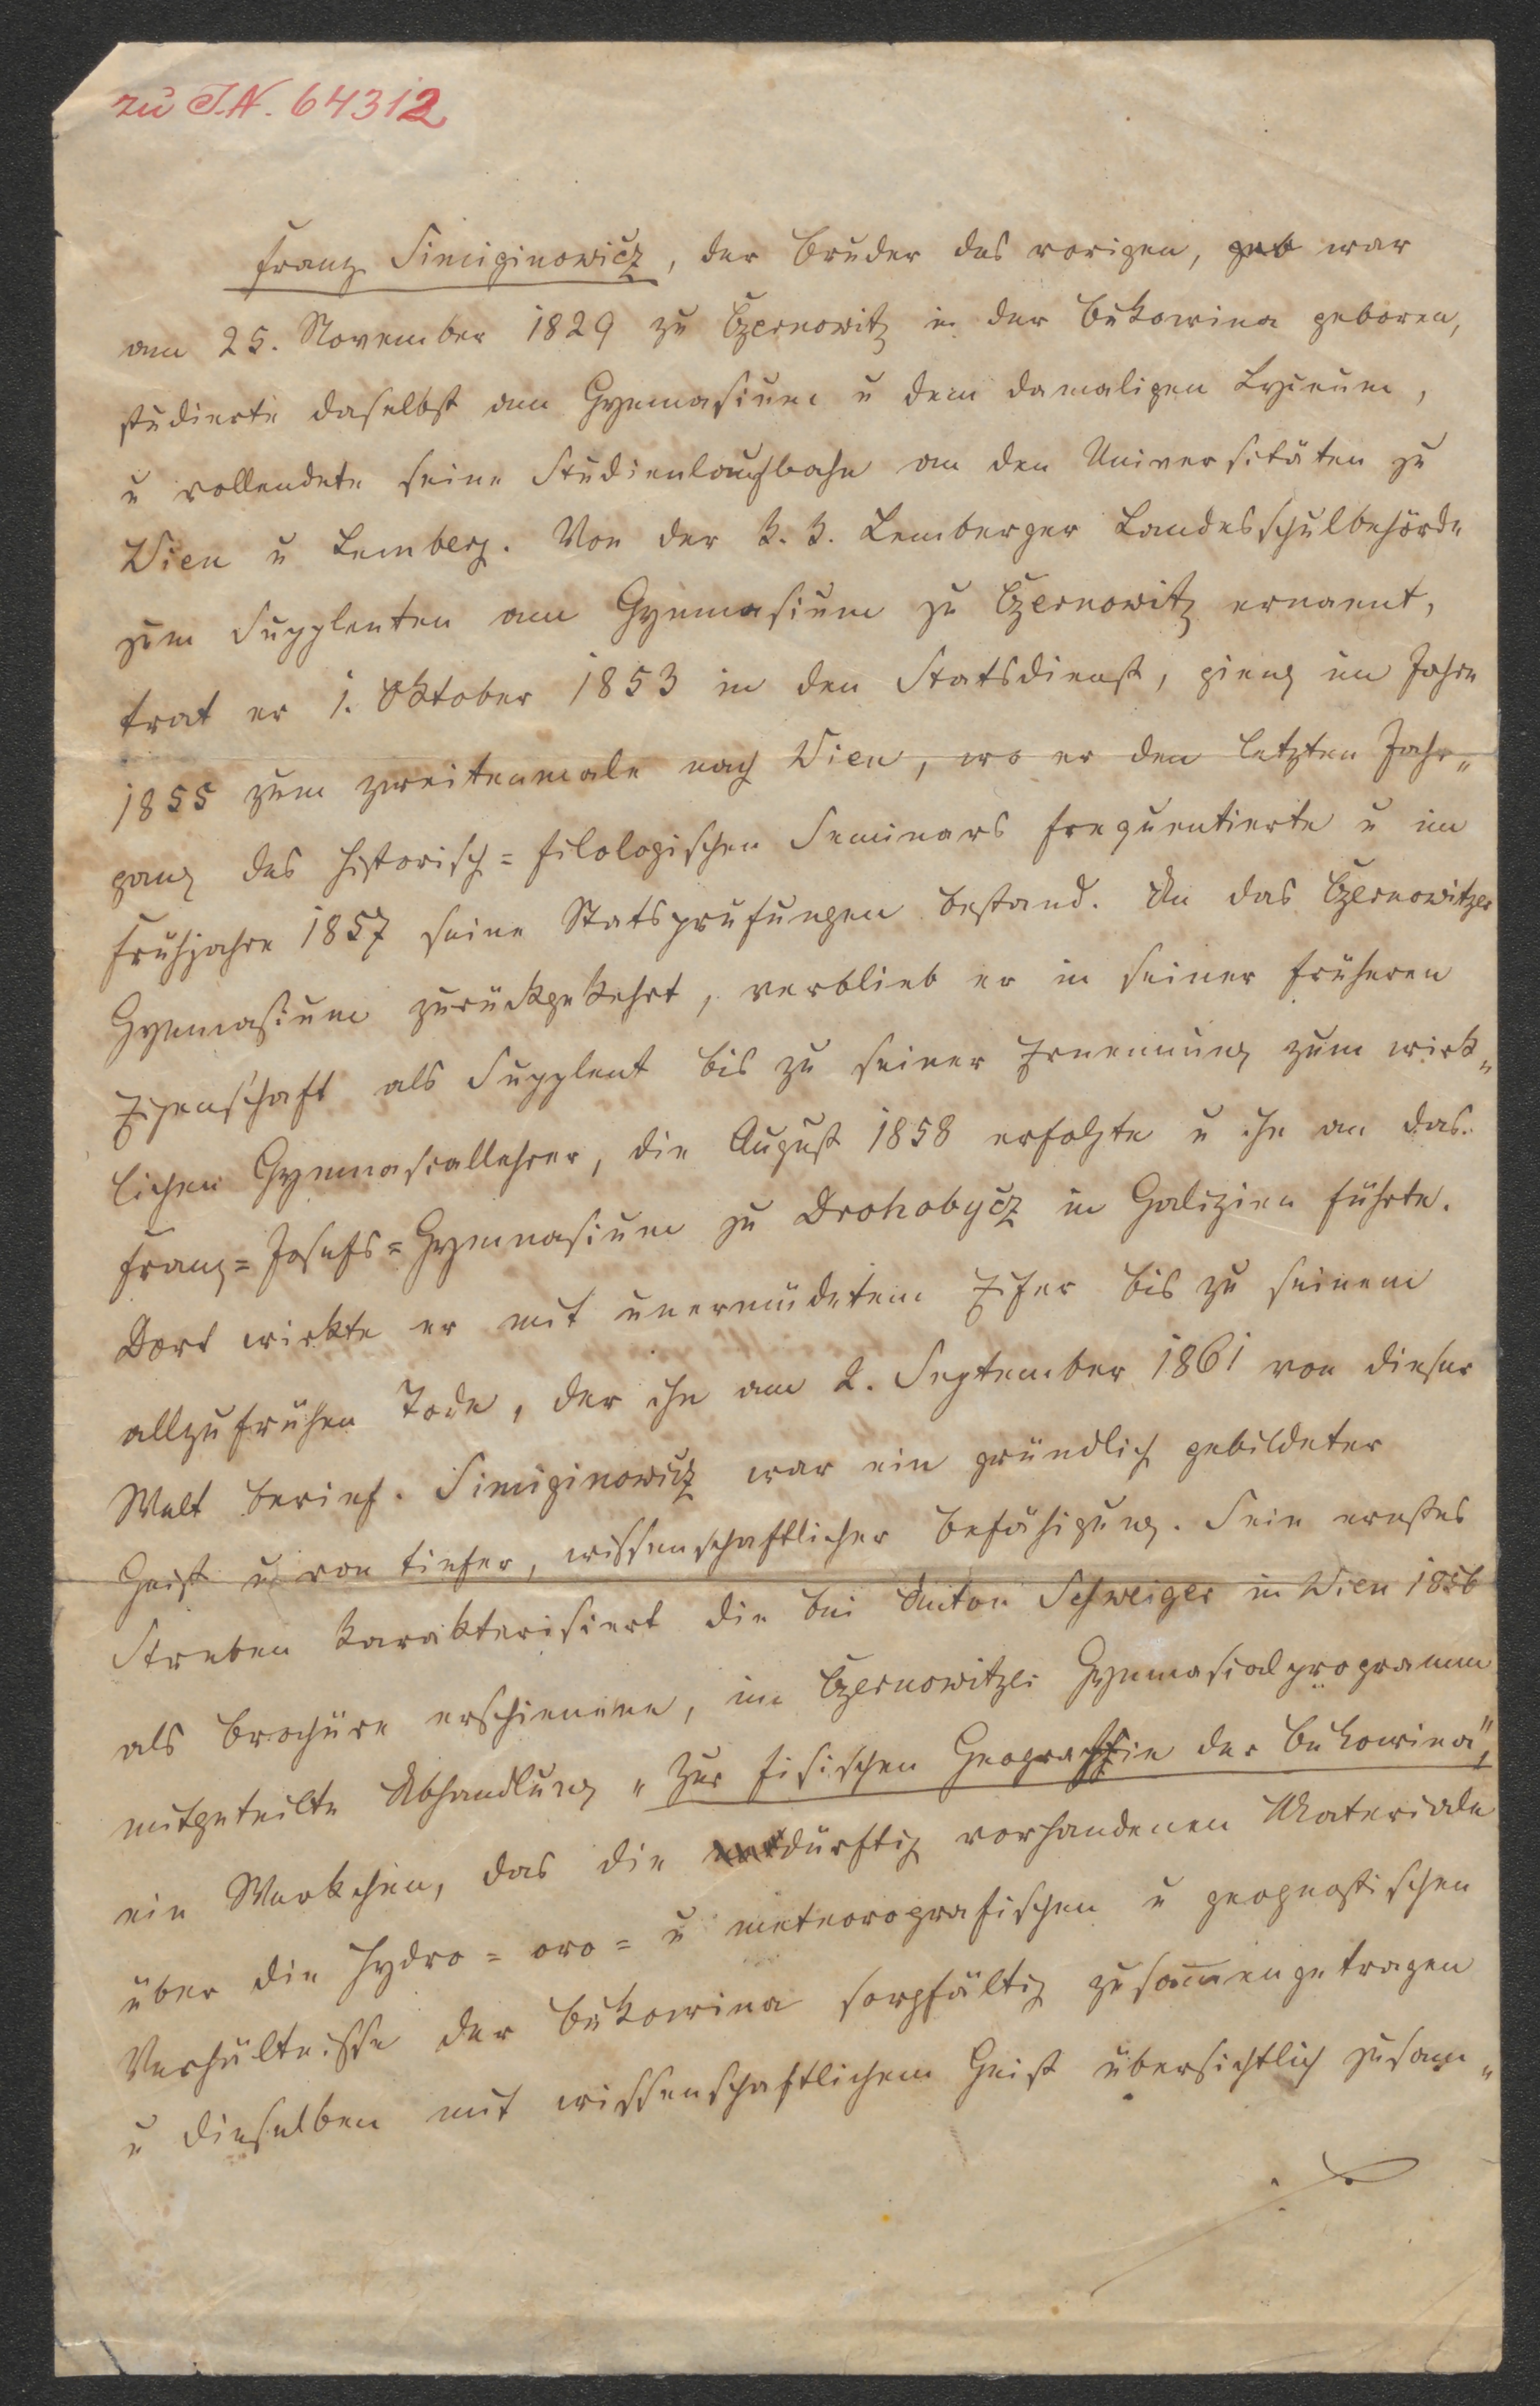 zu I.N. 64312
Franz Simiginowicz, der Bruder des vorigen, geb war
am 25. November 1829 zu Czernowitz in der Bukowina geboren,
studierte daselbst am Gymnasium u dem damaligen Lyceum,
u vollendete seine Studienlaufbahn an den Universitäten zu
Wien u Lemberg. Von der k. k. Lemberger Landesschulbehörde
zum Supplenten am Gymnasium zu Czernowitz ernannt,
trat er 1. Oktober 1853 in den Statsdienst, gieng im Jahre
1855 zum zweitenmale nach Wien, wo er den letzten Jahr„
gang des historisch=filologischen Seminars frequentierte u im
Frühjahre 1857 seine Statsprüfungen bestand. An das Czernowitzer
Gymnasium zurückgekehrt, verblieb er in seiner früheren
Eigenschaft als Supplent bis zu seiner Ernennung zum wirk„
lichen Gymnasiallehrer, die August 1858 erfolgte u ihn an das
Franz=Josefs=Gymnasium zu Drohobycz in Galizien führte.
Dort wirkte er mit unermüdetem Eifer bis zu seinem
allzufrühen Tode, der ihn am 2. September 1861 von dieser
Welt berief. Simiginowicz war ein gründlich gebildeter
Geist u von tiefer, wissenschaftlicher Befähigung. Sein ernstes
Streben karakterisiert die bei Anton Schweiger in Wien 1856
als Brochüre erschienene, im Czernowitzer Gymnasialprogramm
mitgeteilte Abhandlung „Zur fisischen Geografie der Bukowina",
ein Werkchen, das die dürftig vorhandenen Materiale
über die hydro= oro= u meteorografischen u geognostischen
Verhältnisse der Bukowina sorgfältig zusam̅engetragen
u dieselben mit wissenschaftlichem Geist übersichtlich zusam„